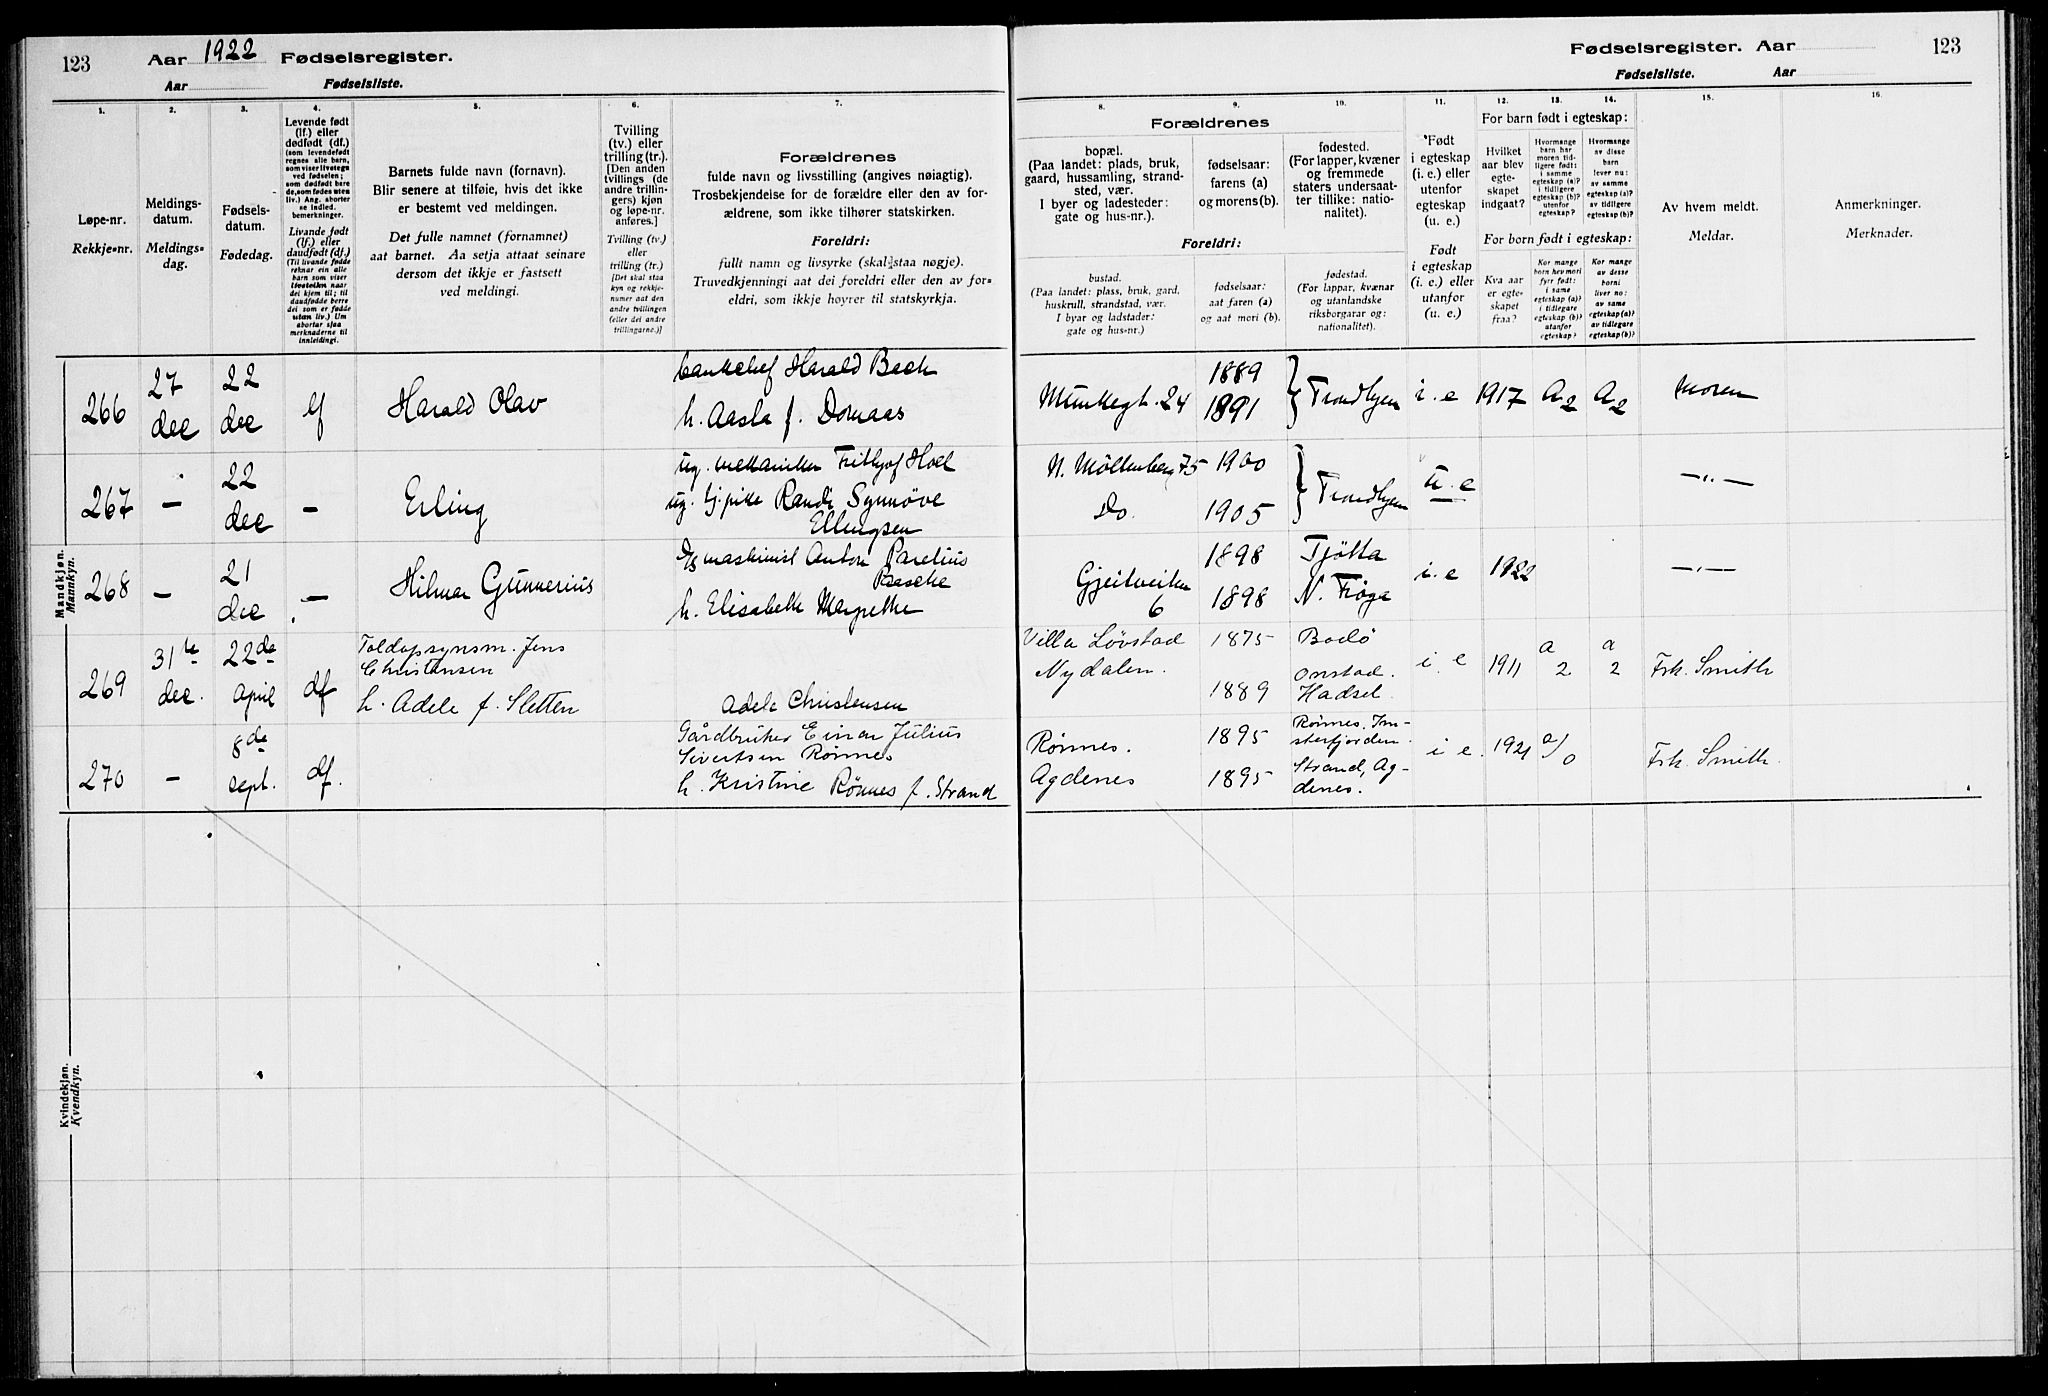 123 Aar 1922 Fødselsregister.
Aar Fødselsliste.
1. 2. 3. 4. 5. 6. 7.
Løpe-nr.
Rekkje-nr.
Meldings-
datum.
Meldings-
dag.
Fødsels-
datum.
Fødedag.
Levende født
(lf.) eller
dødfødt (df.)
(som levendefødt
regnes alle barn,
som viser livstegn
ved fødselen;
som dødfødt bare
de, som fødes uten
liv.) Ang. aborter
se indled.
bemerkninger.
Livande født
(lf.) eller
daudfødt (df.)
(Til livande fødde
reknar ein alle
barn som viser
livsteikn naar
dei kjem til; til
daudfødde berre
dei som er fødde
utan liv.) Um
abortar sjaa
merknaderne til
innleidingi.
Barnets fulde navn (fornavn).
Blir senere at tilføie, hvis det ikke
er bestemt ved meldingen.
Det fulle namnet (fornamnet)
aat barnet. Aa setja attaat seinare
dersom det ikkje er fastsett
ved meldingi.
Tvilling
(tv.) eller
trilling (tr.).
[Den anden
tvillings (de
andre trillin-
gers) kjøn
og løpe-nr.
anføres.]
Tvilling (tv.)
eller
trilling (tr.)
[Det skal staa
kyn og rekkje-
numer aat den
andre tvillingen
(eller dei andre
trillingarne.)]
Forældrenes
fulde navn og livsstilling (angives nøiagtig).
Trosbekjendelse for de forældre eller den av for-
ældrene, som ikke tilhører statskirken.
Foreldri:
fullt namn og livsyrke (skal staa nøgje).
Truvedkjenningi aat dei foreldri eller den av for-
eldri, som ikkje høyrer til statskyrkja.
Mandkjøn.
Mannkyn.
266 27 dec 22 dec lf Harald Olav
bankchef Harald Bech
h. Aasla f. Domaas
267 — 22 dec — Erling
ug. mekaniker Frithjof Hoel
ug. Randi Synnøve
Ellingsen
268 — 21 dec — Hilmar Gunnerius
maskinist Anton Parelius
h. Elisabeth Margrethe
269 31te dec. 22de april df
Toldopsynsm. Jens
Christensen
h. Adele f. Sletten
Adele Christensen
270 — 8de sept. df.
Gårdbruker Einar Julius
Sivertsen Rönnes
h. Kristine Rönnes f. Strand
Kvindekjøn.
Kvendkyn.
Fødselsregister. Aar 123
Fødselsliste. Aar
8. 9. 10. 11. 12. 13. 14. 15. 16.
Forældrenes
bopæl.
(Paa landet: plads, bruk,
gaard, hussamling, strand-
sted, vær.
I byer og ladesteder:
gate og hus-nr.).
fødselsaar:
farens (a)
og morens (b).
fødested.
(For lapper, kvæner
og fremmede
staters undersaat-
ter tillike: natio-
nalitet).
Foreldri:
bustad.
(Paa landet: plass, bruk, gard,
huskrull, strandstad, vær.
I byar og ladstader:
gate og hus-nr.)
fødselsaar:
aat faren (a)
og aat mori (b).
fødestad.
(For lappar, kvænar
og utanlandske
riksborgarar og:
nationalitet).
Født
i egteskap
(i. e.) eller
utenfor
egteskap
(u. e.)
Født
i egteskap
(i. e.) eller
utanfor
(u. e.)
For barn født i egteskap:
Hvilket
aar blev
egte-
skapet
indgaat?
Hvormange
barn har
moren tid-
ligere født:
i samme
egteskap (a)?
i tidligere
egteskap (b)?
utenfor
egteskap?
Hvormange
av disse
barn
lever nu:
av samme
egteskap (a)?
av tidligere
egteskap (b)?
For born født i egteskap:
Kva aar
er egte-
skapet
fraa?
Kor mange
born hev mori
fyrr født:
i same
egteskap (a)?
i tidlegare
egteskap (b)?
utanfor
egteskap?
Kor mange
av desse
borni
liver no:
av same
egteskap (a)?
av tidlegare
egteskap (b)?
Av hvem meldt.
Meldar.
Anmerkninger.
Merknader.
Munkegt. 24 1889 1891 } Trondhjem i. e 1917 A2 A2 moren
N. Möllenberg 75 1900
Do. 1905 } Trondhjem u. e —„—
1898 Tjötta
6 1898 N. Fröya i. e 1922 —„—
Villa Lövstad 1875 Bodö
Nydalen. 1889 Hadsel. i. e 1911 a 2 a 2 Frk. Smith
Rönnes. 1895 Rönnes, Im-
sterfjorden.
Agdenes 1895 Strand, Ag-
denes. i e. 1921 a/0 Frk. Smith.